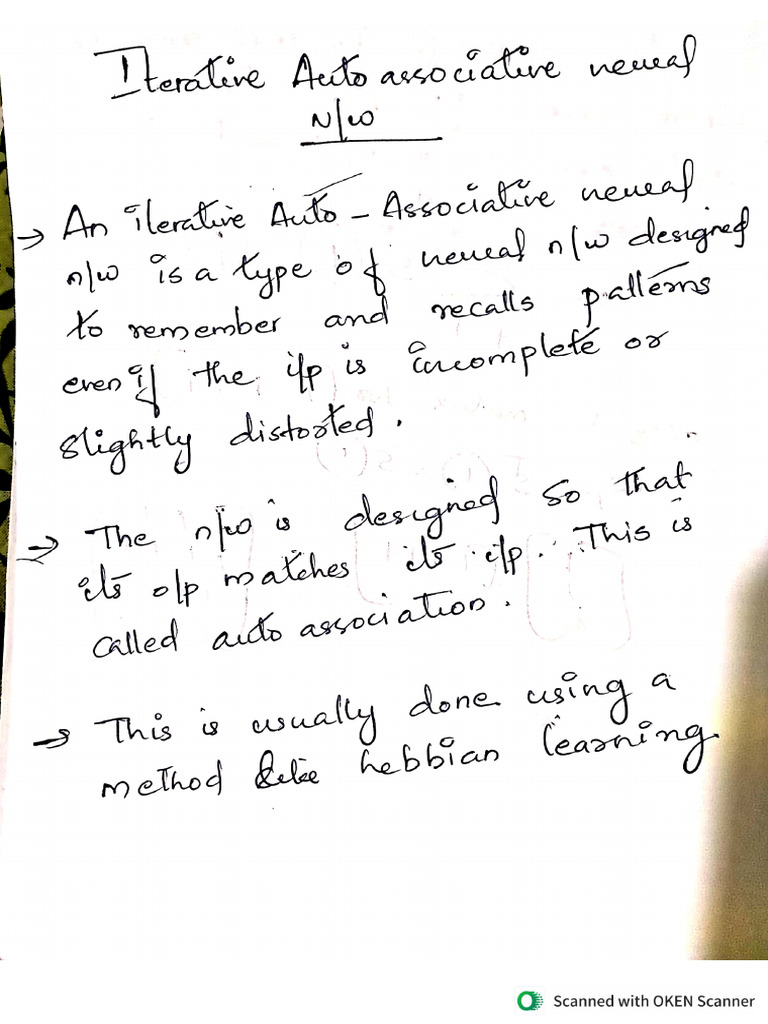 Iterative Auto associative neural
n/w
→ An iterative Auto - Associative neural
n/w is a type of neural n/w designed
to remember and recalls patterns
even if the i/p is incomplete or
slightly distorted.
→ The n/w is designed so that
its o/p matches its i/p. This is
called auto association.
→ This is usually done using a
method like hebbian learning.
Scanned with OKEN Scanner